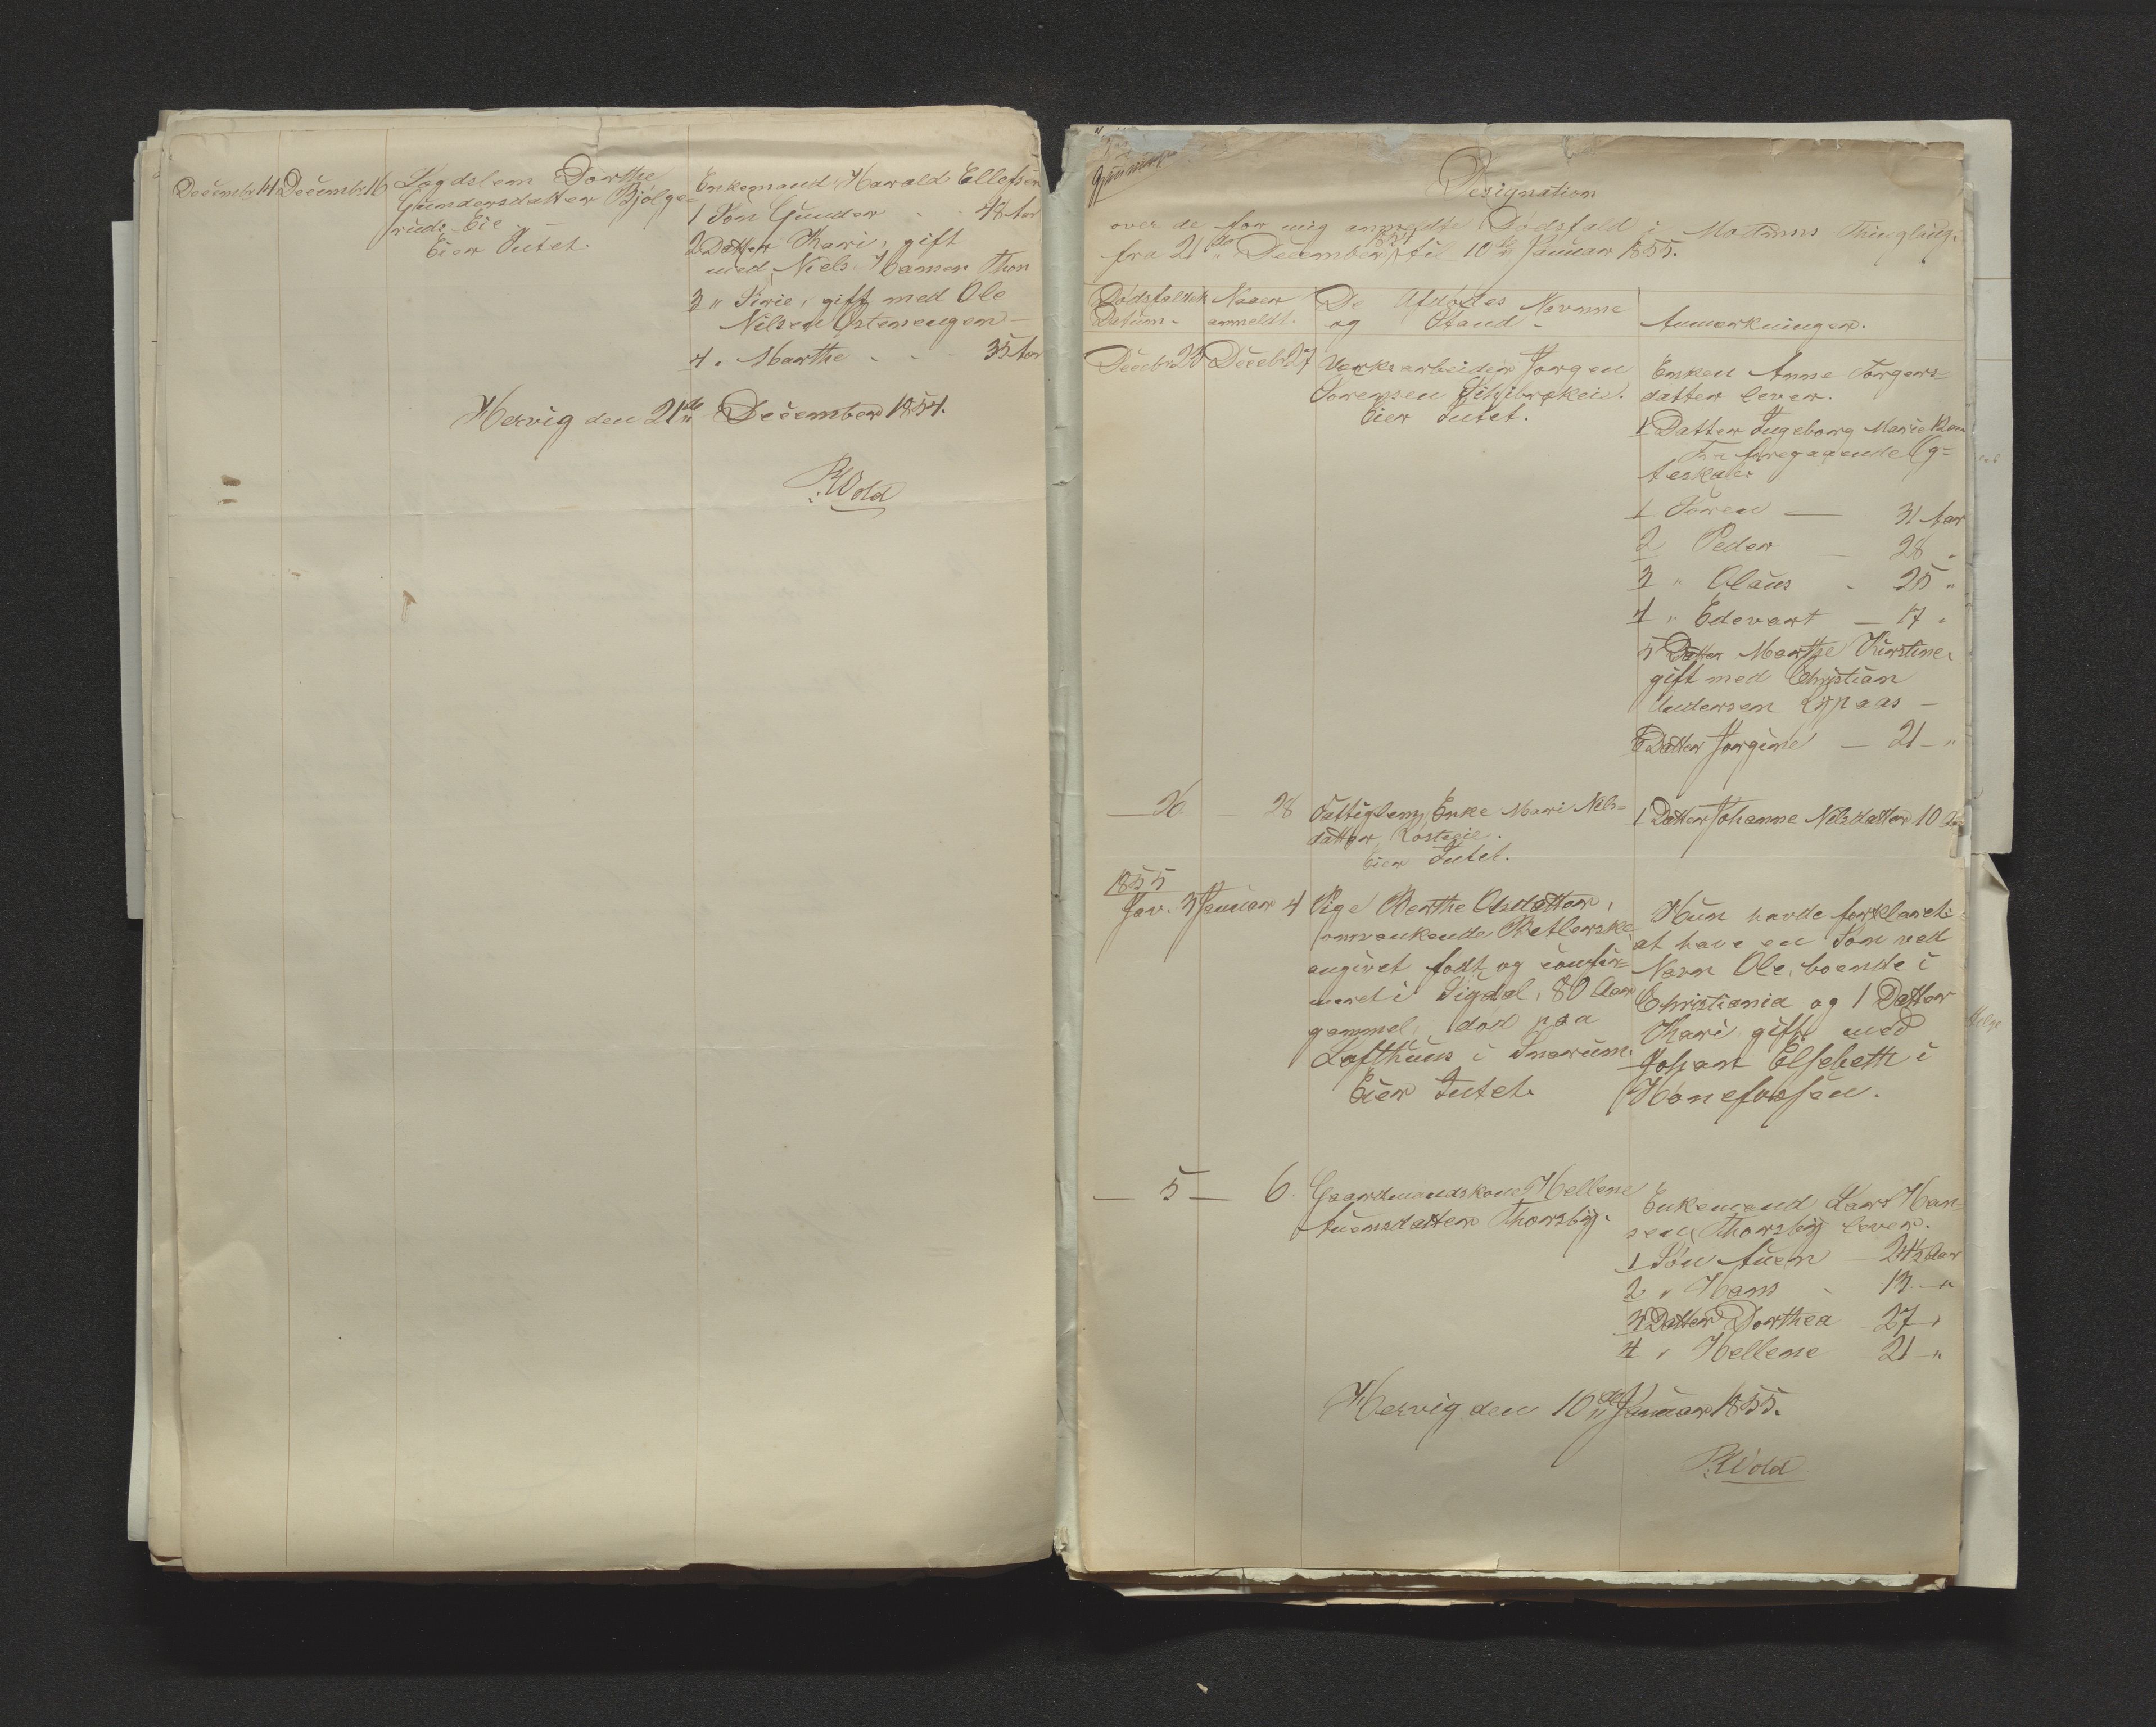 Decembr 14 Decembr 16 Lægdslem Dorthe
Gundersdatter Bjølge=
ruds Eie
Eier Intet.
Enkemand Harald Ellefsen
1 Søn Gunder - - 48 Aar
2 Datter Kari, gift
med Niels Hansen Thon
3 " Sirie, gift med Ole
Nilsen Østenengen -
4 " Marthe - - - 35 Aar
Hervig den 21de December 1854.
RWold
Designation
over de for mig anmeldte Dødsfald i Modums Thinglaug.
fra 21de December 1854 til 10de Januar 1855.
Dødsfaldets
Datum.
Naar
anmeldt.
De Afdødes Navne
og Stand.
Anmærkninger.
Decbr. 23 Decebr. 27 Værksarbeider Jørgen
Sørensen
Eier Intet.
Enken Anne Torgers=
datter lever.
1 Datter Ingeborg Marie 12 Aar
Fra foregaaende Æg=
teskab:
1 Søren — 31 Aar
2 Peder — 28 "
3 " Olaus - 25 "
4 " Edevart — 17 "
5 Datter Marthe Kirstine,
gift med Christian
Andersen Rypaas —
6 Datter Jørgine — 21 — "
— 26. — 28 Fattiglem, Enke Mari Nils=
datter
Eier Intet.
1 Datter Johanne Nilsdatter 10 Aar
1855
Jan. 3 Januar 4 Pige Berthe Olsdatter,
omvankende Betlerske
angivet født og confir=
meret i Sigdal, 80 Aar
gammel, død paa
Lofthuus i Snarum.
Eier Intet.
Hun havde forklaret
at have en Søn ved
Navn Ole, boende i
Christiania og 1 Datter
Kari gift med
Johan Elsebeth i
Hønefossen.
— 5 — 6. Gaardmandskone Hellene
Auensdatter Thorsby.
Enkemand Lars Han=
sen Thorsby lever.
1 Søn Auen — 24½ Aar
2 " Hans - 13. — "
3 Datter Dorthea 27 "
4 " Hellene 21 — "
Hervig den 10de Januar 1855.
RWold